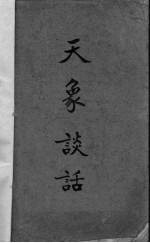 天象談話